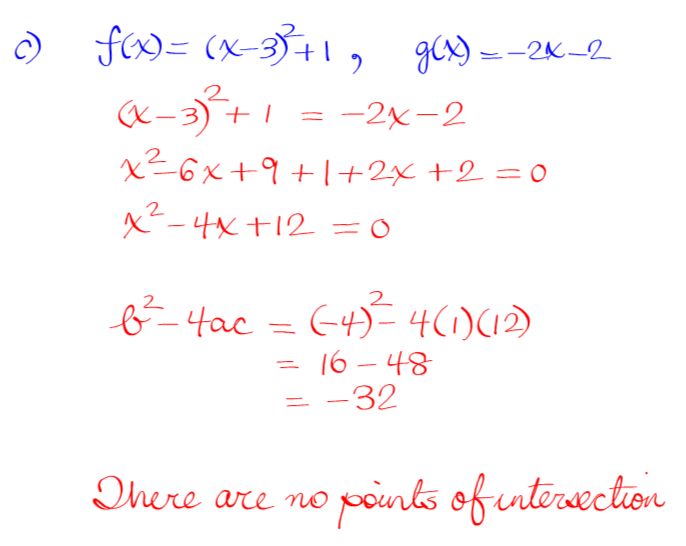 c) f(x) = (x-3)²+1, g(x) = -2x-2
(x-3)²+1 = -2x-2
x²-6x+9+1+2x+2=0
x²-4x+12=0
b²-4ac = (-4)²-4(1)(12)
= 16-48
= -32
There are no points of intersection